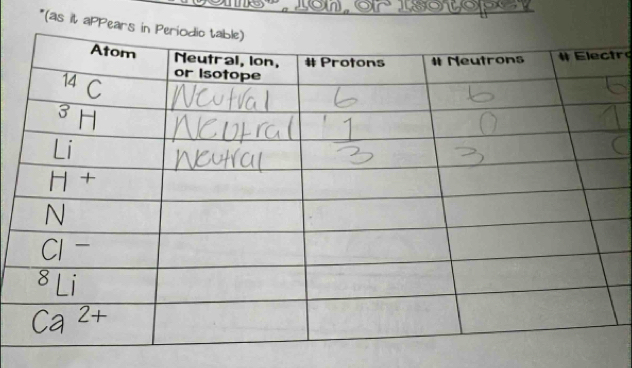 Ion, or Isotope?
*(as it appears in Periodic table)
Atom Neutral, Ion, or Isotope # Protons # Neutrons # Electro
14 C Neutral 6 6 6
3 H Neutral 1 0 1
Li Neutral 3 3
H +
N
Cl -
8 Li
Ca 2+